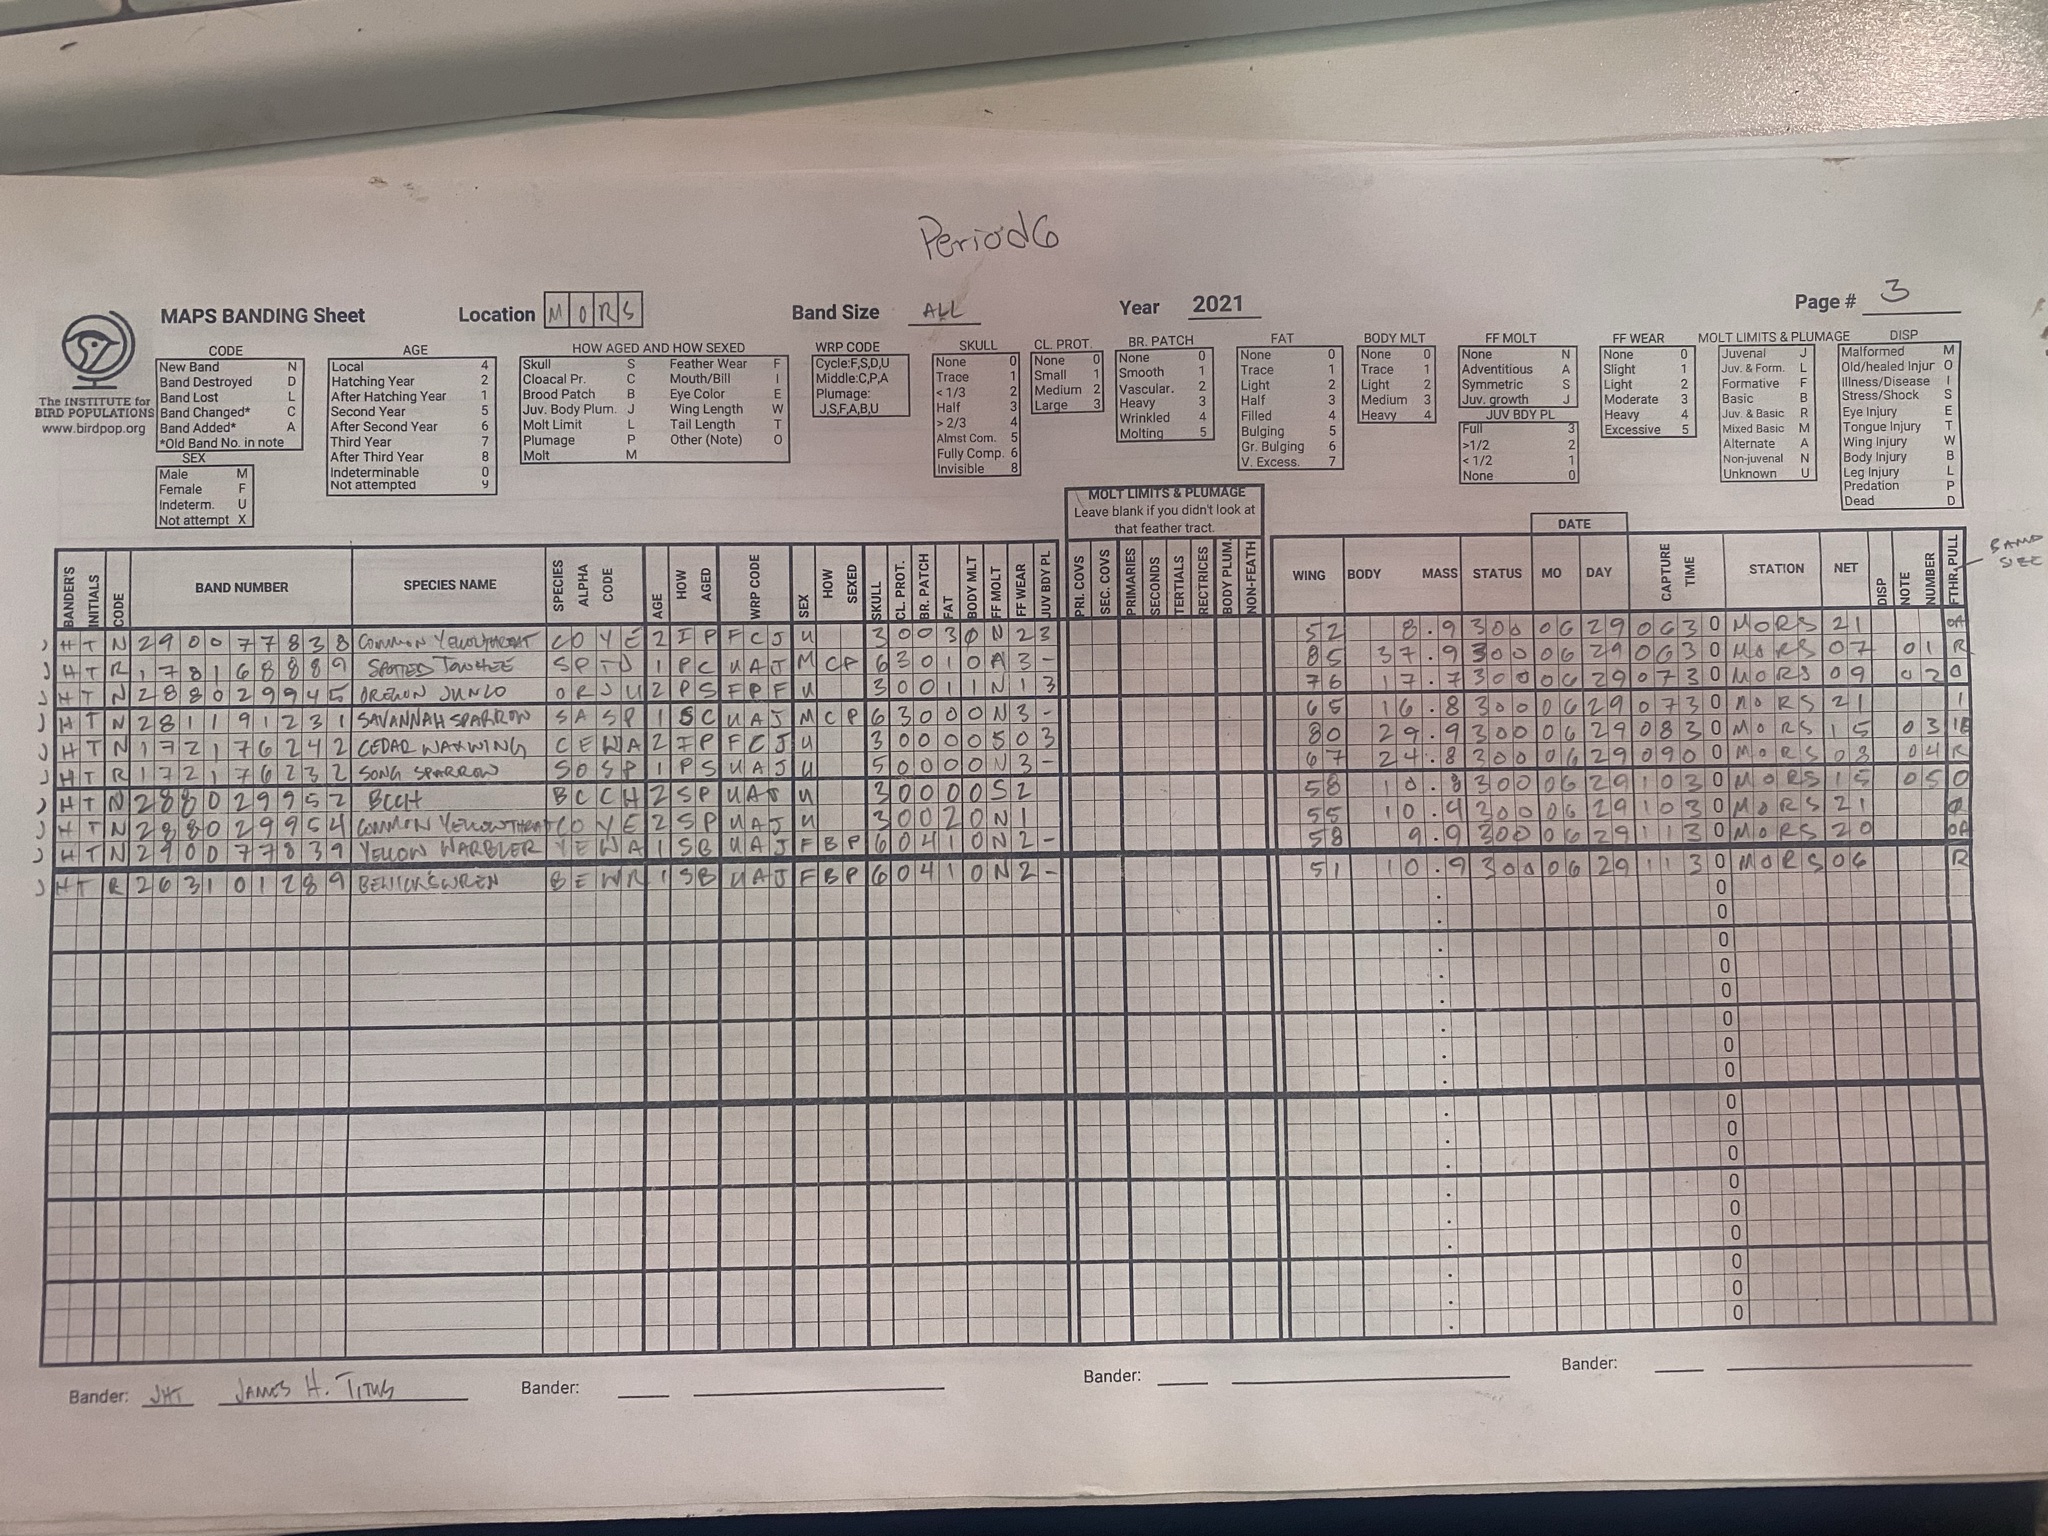 Period 6
MAPS BANDING Sheet Location MORS Band Size ALL Year 2021 Page # 3
The INSTITUTE for
BIRD POPULATIONS
www.birdpop.org
CODE
New Band N
Band Destroyed D
Band Lost L
Band Changed* C
Band Added* A
*Old Band No. in note
SEX
Male M
Female F
Indeterm. U
Not attempt X
AGE
Local 4
Hatching Year 2
After Hatching Year 1
Second Year 5
After Second Year 6
Third Year 7
After Third Year 8
Indeterminable 0
Not attempted 9
HOW AGED AND HOW SEXED
Skull S Feather Wear F
Cloacal Pr. C Mouth/Bill I
Brood Patch B Eye Color E
Juv. Body Plum. J Wing Length W
Molt Limit L Tail Length T
Plumage P Other (Note) O
Molt M
WRP CODE
Cycle:F,S,D,U
Middle:C,P,A
Plumage:
J,S,F,A,B,U
SKULL
None 0
Trace 1
< 1/3 2
Half 3
> 2/3 4
Almst Com. 5
Fully Comp. 6
Invisible 8
CL. PROT.
None 0
Small 1
Medium 2
Large 3
BR. PATCH
None 0
Smooth 1
Vascular. 2
Heavy 3
Wrinkled 4
Molting 5
FAT
None 0
Trace 1
Light 2
Half 3
Filled 4
Bulging 5
Gr. Bulging 6
V. Excess. 7
BODY MLT
None 0
Trace 1
Light 2
Medium 3
Heavy 4
FF MOLT
None N
Adventitious A
Symmetric S
Juv. growth J
JUV BDY PL
Full 3
>1/2 2
< 1/2 1
None 0
FF WEAR
None 0
Slight 1
Light 2
Moderate 3
Heavy 4
Excessive 5
MOLT LIMITS & PLUMAGE
Juvenal J
Juv. & Form. L
Formative F
Basic B
Juv. & Basic R
Mixed Basic M
Alternate A
Non-juvenal N
Unknown U
DISP
Malformed M
Old/healed Injur O
Illness/Disease I
Stress/Shock S
Eye Injury E
Tongue Injury T
Wing Injury W
Body Injury B
Leg Injury L
Predation P
Dead D
MOLT LIMITS & PLUMAGE
Leave blank if you didn't look at
that feather tract.
DATE
BANDER'S INITIALS CODE BAND NUMBER SPECIES NAME SPECIES ALPHA CODE AGE HOW AGED WRP CODE SEX HOW SEXED SKULL CL. PROT. BR. PATCH FAT BODY MLT FF MOLT FF WEAR JUV BDY PL PRI. COVS SEC. COVS PRIMARIES SECONDS TERTIALS RECTRICES BODY PLUM. NON-FEATH WING BODY MASS STATUS MO DAY CAPTURE TIME STATION NET DISP NOTE NUMBER FTHR. PULL
BAND SIZE
JHT N 290077838 COMMON YELLOWTHROAT COYE 2 IP FCJ U 3 0 0 3 0 N 2 3 52 8.9 300 06 29 0630 MORS 21 0A
JHT R 178168889 SPOTTED TOWHEE SPTO 1 PC UAJ M CP 6 3 0 1 0 A 3 - 85 37.9 300 06 29 0630 MORS 07 01 R
JHT N 288029945 OREGON JUNCO ORJU 2 PS FPF U 3 0 0 1 1 N 1 3 76 17.7 300 06 29 0730 MORS 09 02 0
JHT N 281191231 SAVANNAH SPARROW SASP 1 SC UAJ M CP 6 3 0 0 0 N 3 - 65 16.8 300 06 29 0730 MORS 21 1
JHT N 172176242 CEDAR WAXWING CEWA 2 IP FCJ U 3 0 0 0 0 S 0 3 80 29.9 300 06 29 0830 MORS 15 03 1B
JHT R 172176232 SONG SPARROW SOSP 1 PS UAJ U 5 0 0 0 0 N 3 - 67 24.8 300 06 29 090 MORS 03 04 R
JHT N 288029952 BCCH BCCH 2 SP UAJ U 3 0 0 0 0 S 2 58 10.8 300 06 29 1030 MORS 15 05 0
JHT N 288029954 COMMON YELLOWTHROAT COYE 2 SP UAJ U 3 0 0 2 0 N 1 55 10.4 300 06 29 1030 MORS 21 0
JHT N 290077839 YELLOW WARBLER YEWA 1 SB UAJ F BP 6 0 4 1 0 N 2 - 58 9.9 300 06 29 1130 MORS 20 0A
JHT R 263101289 BEWICK'S WREN BEWR 1 SB UAJ F BP 6 0 4 1 0 N 2 - 51 10.9 300 06 29 1130 MORS 06 R
0
0
0
0
0
0
0
0
0
0
0
0
0
0
0
0
0
Bander: JHT James H. Titus Bander: Bander: Bander: